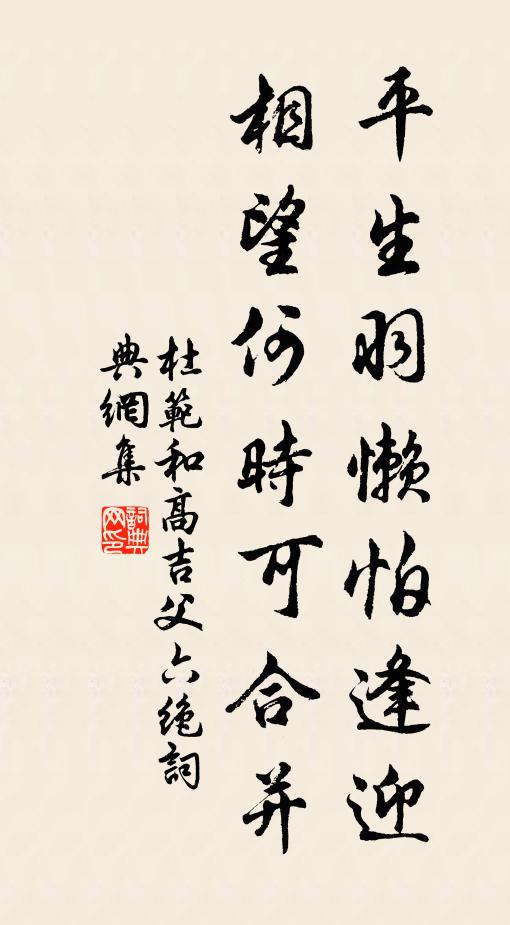 平生羽懶怕逢迎
相望何時可合并
杜範和高吉父六絶詞
典網集
詞典
网印